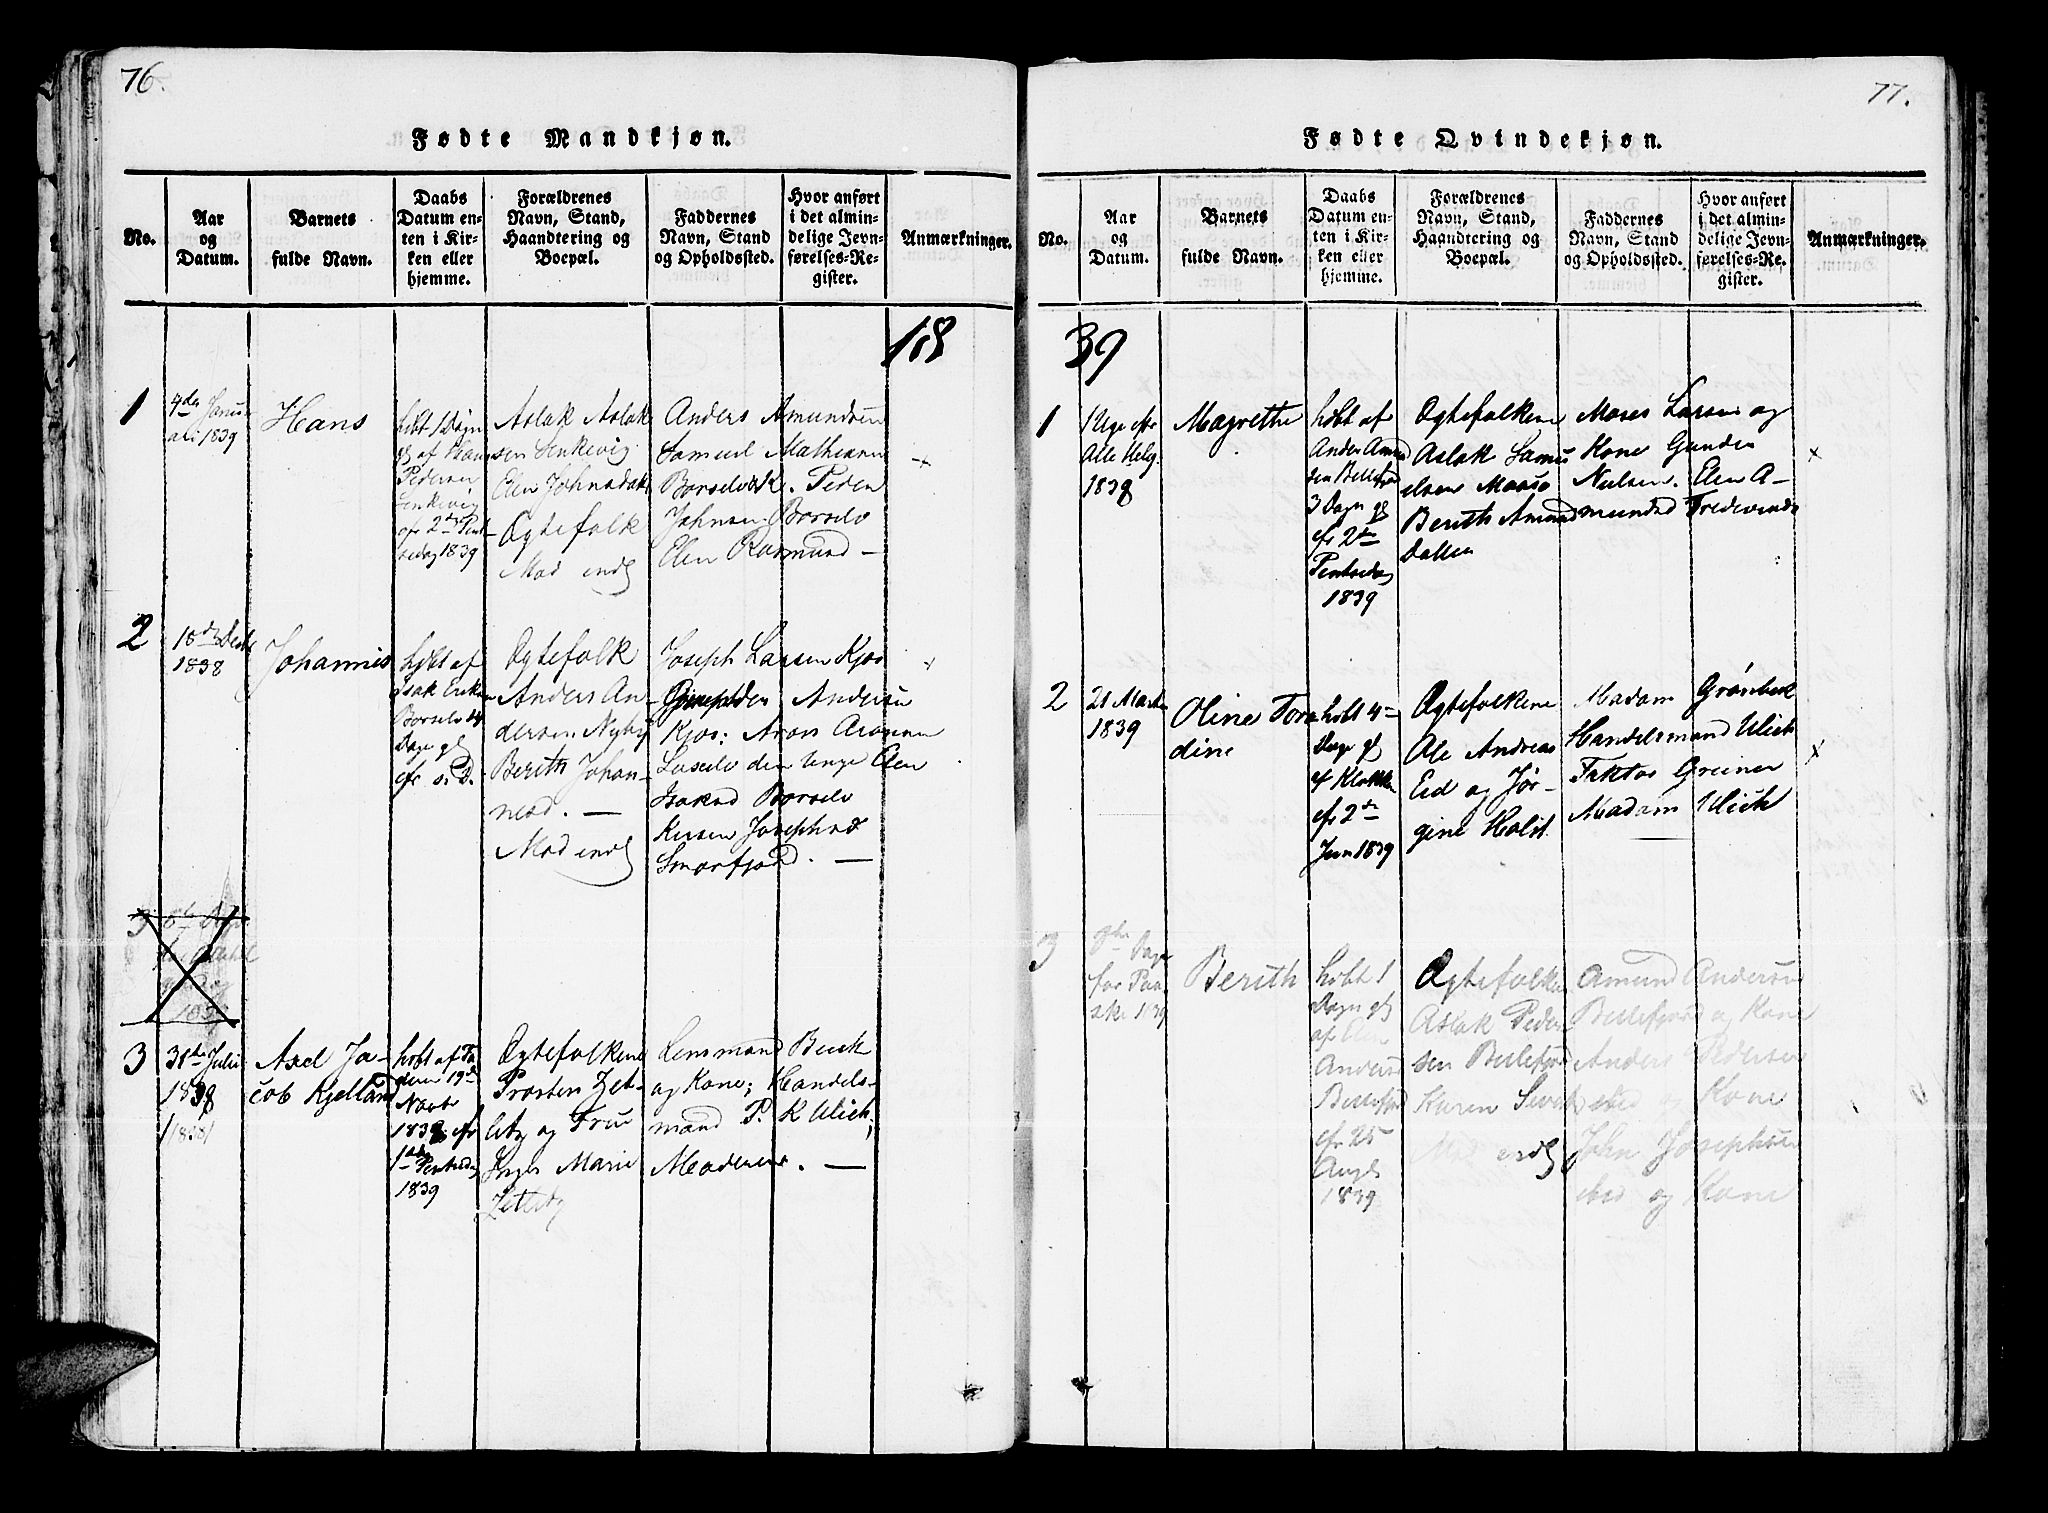 76.
Fødte Mandkjøn.
No.
Aar
og
Datum.
Barnets
fulde Navn.
Daabs
Datum en-
ten i Kir-
ken eller
hjemme.
Forældrenes
Navn, Stand,
Haandtering og
Boepæl.
Faddernes
Navn, Stand
og Opholdssted.
Hvor anført
i det almin-
delige Jevn-
førelses-Re-
gister.
Anmærkninger.
18
1
4de Janu-
ari 1839
Hans
hibt 1 Dagn
gl af Hans
Pedersen
Senkevig
efr 2den Pint-
sedag 1839
Aslak Aslak
sen Senkevig
Elen Johnsdatr
Ogtefolk
Mod endl
Anders Amundsen
Samuel Mathisen
Borselv
Johnsen Borselv
Elen Rasmusd –
+
2
18de Decbr
1838
Johannis
hibt af
Isak Erikse
Borselv
Dage gl
efr s. D.
Ogtefolk
Anders An-
dersen Nyby
Berith Johan-
nesd. —
Mod endl
Joseph Larsen Kjos
Andersen
Kjos; Arons Aronsen
Laxelv den unge Elen
Isaksd Borselv
Kirsten Josephsd
Smorfjord. —
+
3
3
31te Julii
1838
/1838/
Axel Ja-
cob Kjelland
hibt af Fa
deren 19de
Novbr
1838 efr
1ste Pintsedag
1839
Ogtefolkene
Prosten Zet-
litz og Frue
Inger Marie
Zetlitz
Lensmand Buck
og Kone; Handels-
mand P. K Ulich;
Moderen. —
77.
Fødte Qvindekjøn.
No.
Aar
og
Datum.
Barnets
fulde Navn.
Daabs
Datum en-
ten i Kir-
ken eller
hjemme.
Forældrenes
Navn, Stand,
Haandtering og
Boepæl.
Faddernes
Navn, Stand
og Opholdssted.
Hvor anført
i det almin-
delige Jevn-
førelses-Re-
gister.
Anmærkninger.
39
1
1 Uge efr
Alle Helg.
1838
Magrethe
hibt af
Anders Amund
sen Bellefjo
3 Dagn gl
efr 2den
Pintsedag
1839
Ogtefolkene
Aslak Samu
elsen Maasø
Berith Amund
Datter
Moses Larsen og
Kone Gunder
Nielsen. Elen A-
mundsd
x
2
21 Marts
1839
Oline Torn
dine
hibt 4
Dage gl
af Klokken
efr 2den
Jun 1839
Ogtefolkene
Ole Andreas
Eid og Jør-
gine Holst
Madam Grønbeck
Handelsmand Ulich
Faktor Greiner
Madam Ulich
x
3
8te Dage
for Paa
ske 1839
Berith
hibt 1
Dagn gl
af Elen
Andersd
Bellefjord
efr 25
Augst
1839
Ogtefolken
Aslak Peder
sen Bellefjord
Karen
Mod endl
Amund Andersen
Bellefjord og Kone
Anders Pedersen
ibid og Kone
John Josephsen
ibid og Kone